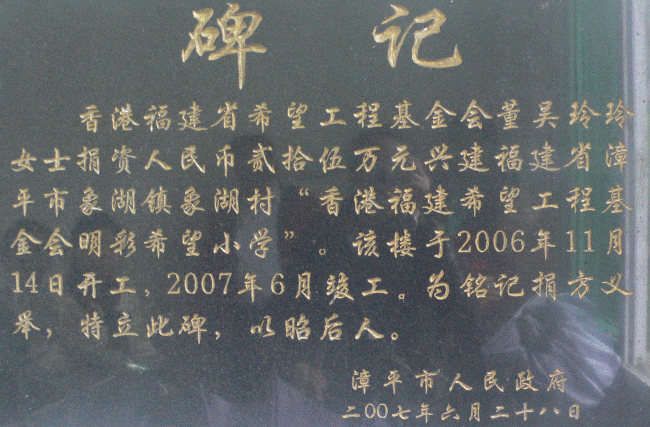 碑记
香港福建省希望工程基金会董吴玲玲
女士捐资人民币贰拾伍万元兴建福建省漳
平市象湖镇象湖村“香港福建希望工程基
金会明彩希望小学”。该楼于2006年11月
14日开工，2007年6月竣工。为铭记捐方义
举，特立此碑，以昭后人。
漳平市人民政府
二00七年六月二十八日